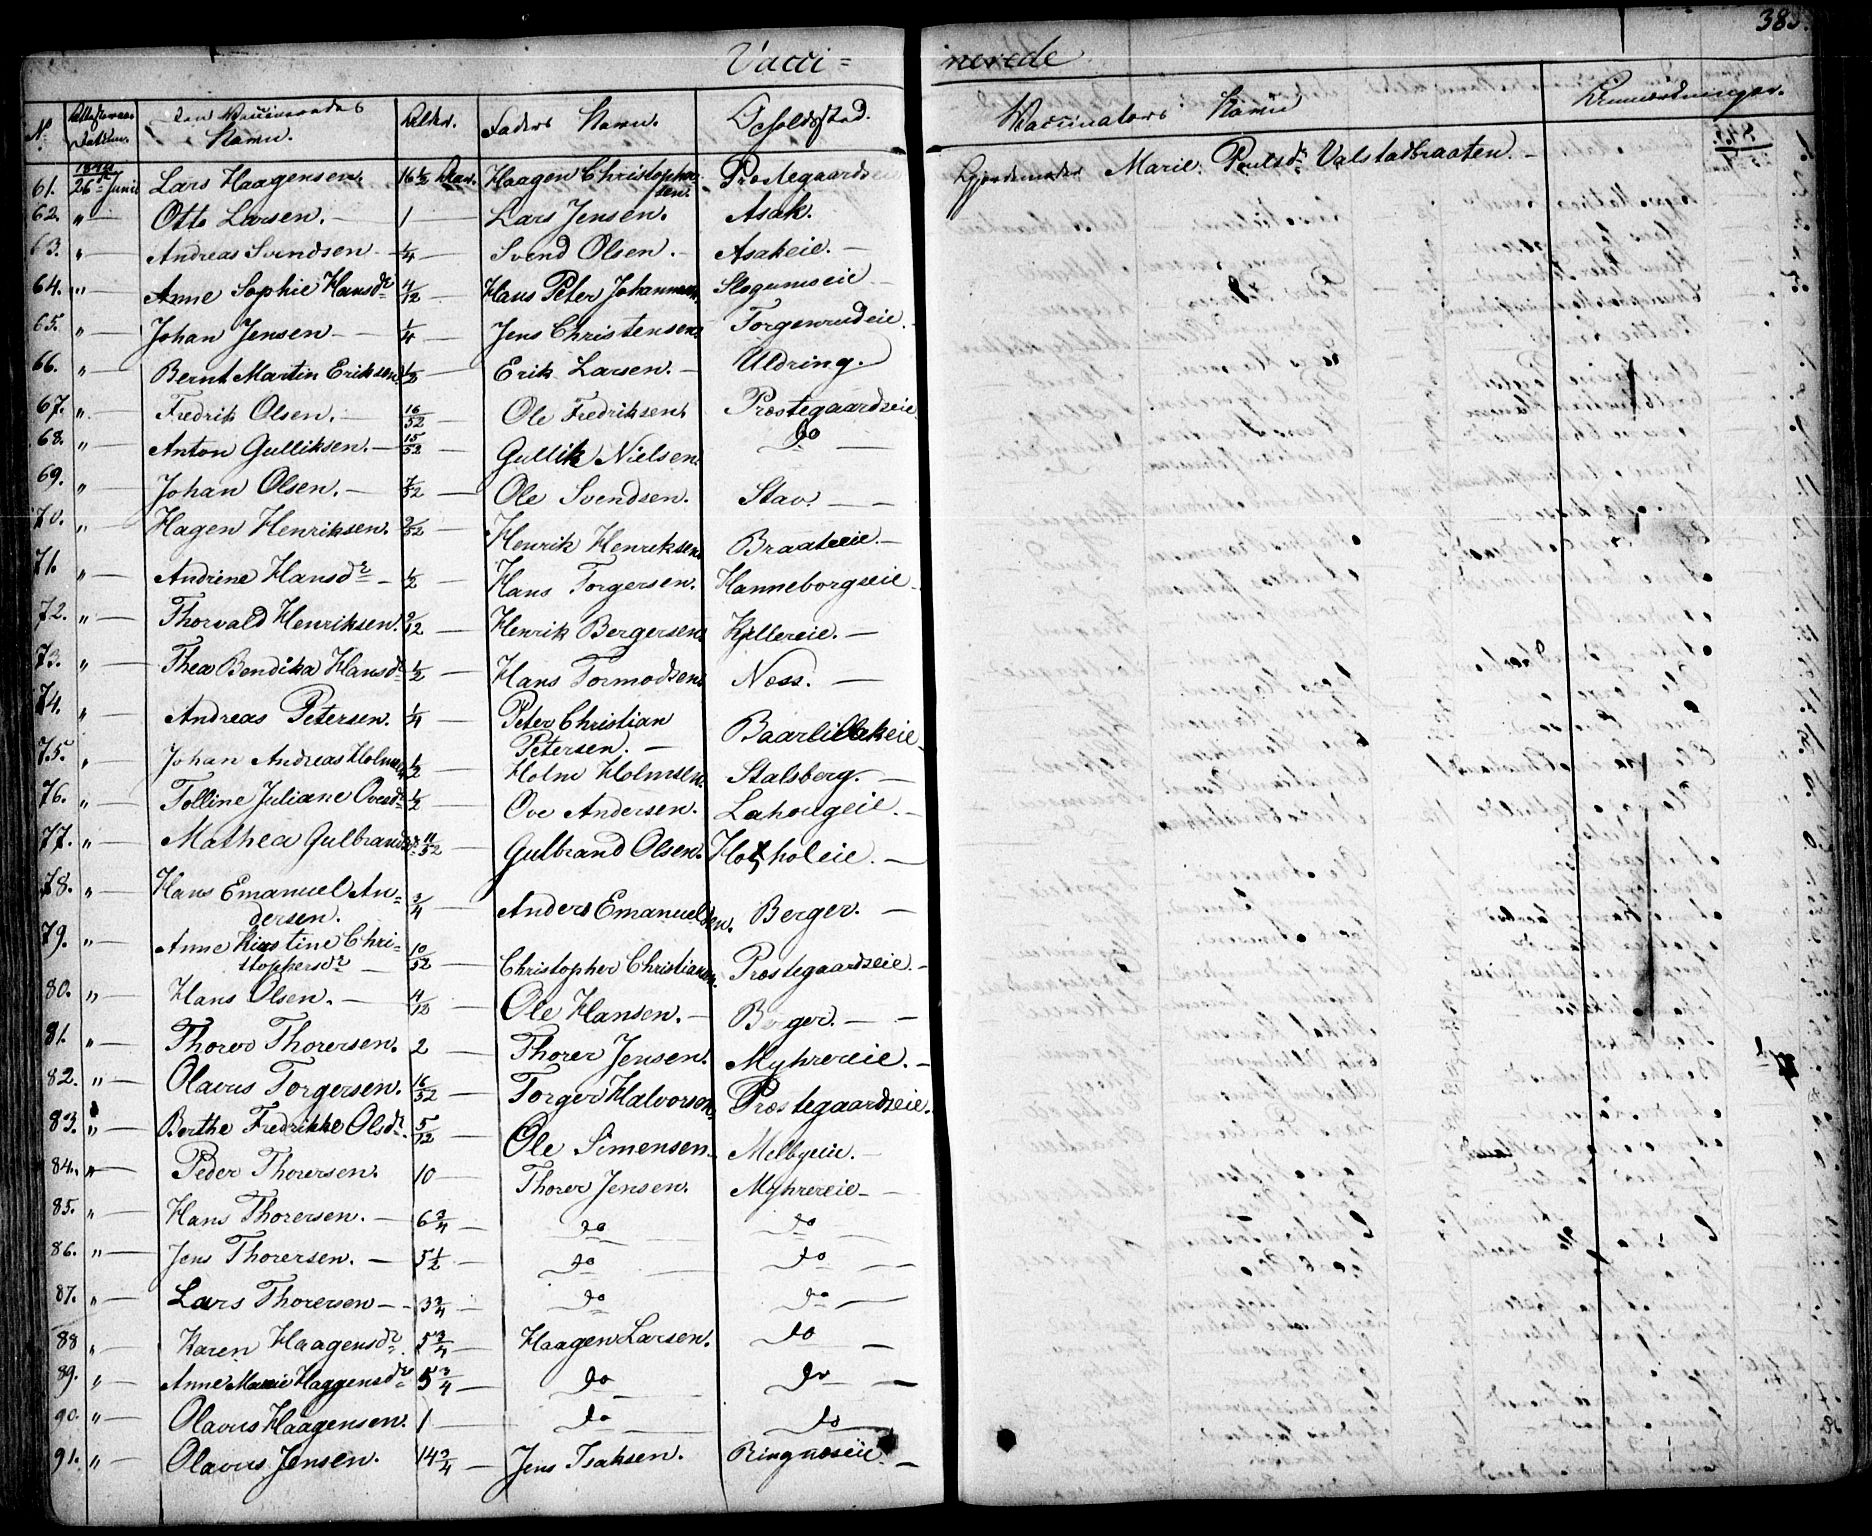 383.
Vacci= nerede
No. Attesternes Datum. den Vaccineredes Navn. Alder. Faders Navn. Opholdssted. Vaccinators Navn Anmærkninger.
61. 26de Junii Lars Haagensen. 16½ Aar. Haagen Christophersen. Præstegaardseie Gjordemoder Marie Poulsdr. Valstadbraaten. –
62. " – Otto Larsen. – 1 – Lars Jensen. Asak.
63. " – Andreas Svendsen – ¼ – Svend Olsen. – Asakeie. –
64. " – Anne Sophie Hansdr 4/12 – Hans Peter Johannesen. Slogumseie –
65. " – Johan Jensen – ¼ – Jens Christensen. Torgenrudeie.
66. " – Bernt Martin Eriksen. ½ – Erik Larsen. – Uldring.
67. " – Fredrik Olsen. – 16/52 – Ole Fredriksen. Præstegaardseie
68. " – Anton Gulliksen. – 15/52 – Gullik Nielsen. do –
69. " – Johan Olsen. – 7/52 – Ole Svendsen. Stav. – –
70. " – Hagen Henriksen. 9/52 – Henrik Henriksen. Braateeie. –
71. " – Andrine Hansdr – ½ – Hans Torgersen. Hanneborgseie –
72. " – Thorvald Henriksen. 9/12 – Henrik Bergersen. Kjellereie. –
73. " – Thea Bendika Hansdr ½ – Hans Tormodsen. Næss. –
74. " – Andreas Petersen. ¼ – Peter Christian Petersen. – Baarlillakeie –
75. " – Johan Andreas Holmsen ½ – Holm Holmsen. Stalsberg. –
76. " – Tolline Juliane Ovesdr ½ – Ove Andersen. Lahougeie. –
77. " – Mathea Gulbrandsdr 11/52 – Gulbrand Olsen. –
78. " – Hans Emanuel Andersen. ¾ – Anders Emanuelsen. Berger. –
79. " – Anne Kirstine Christophersdr – 10/52 – Christopher Christiansen. Præstegaardseie. –
80. " – Hans Olsen. – 11/12 – Ole Hansen. – Berger. – –
81. " – Thorer Thorersen. 2 – Thorer Jensen. Myhrereie. –
82. " – Olavus Torgersen. 16/52 – Torger Halvorsen. Præstegaardseie.
83. " – Berthe Fredrikke Olsdr. 5/12 – Ole Simensen. Melbyeie. –
84. " – Peder Thorersen. 10 – Thorer Jensen. Myhrereie – –
85. " – Hans Thorersen. – 6¾ – do do
86. " – Jens Thorersen. – 5½ – do – do – –
87. " – Lars Thorersen – – 3¾ – do do – –
88 " Karen Haagensdr. 5¾ – Haagen Larsen. do –
89. " – Anne Marie Haggensdr 5¾ – do – do – –
90. " – Olavus Haagensen. 1 – do – do
91. " – Olavus Jensen. 14¾ – Jens Isaksen. Ringnæseie. –